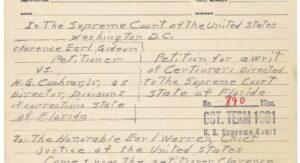 NAME
NUMBER
In The Supreme Court of The United States
Washington D.C.
Clarence Earl Gideon
Petitioner
vs.
H.G. Cochran, Jr., as
Director, Divisions
of corrections state
of Florida.
Petition for a writ
of Certiorari Directed
to The Supreme Court
State of Florida.
No. 890 Misc.
OCT. TERM 1961
U. S. Supreme Court
To: The Honorable Earl Warren, Chief
Justice of the United States